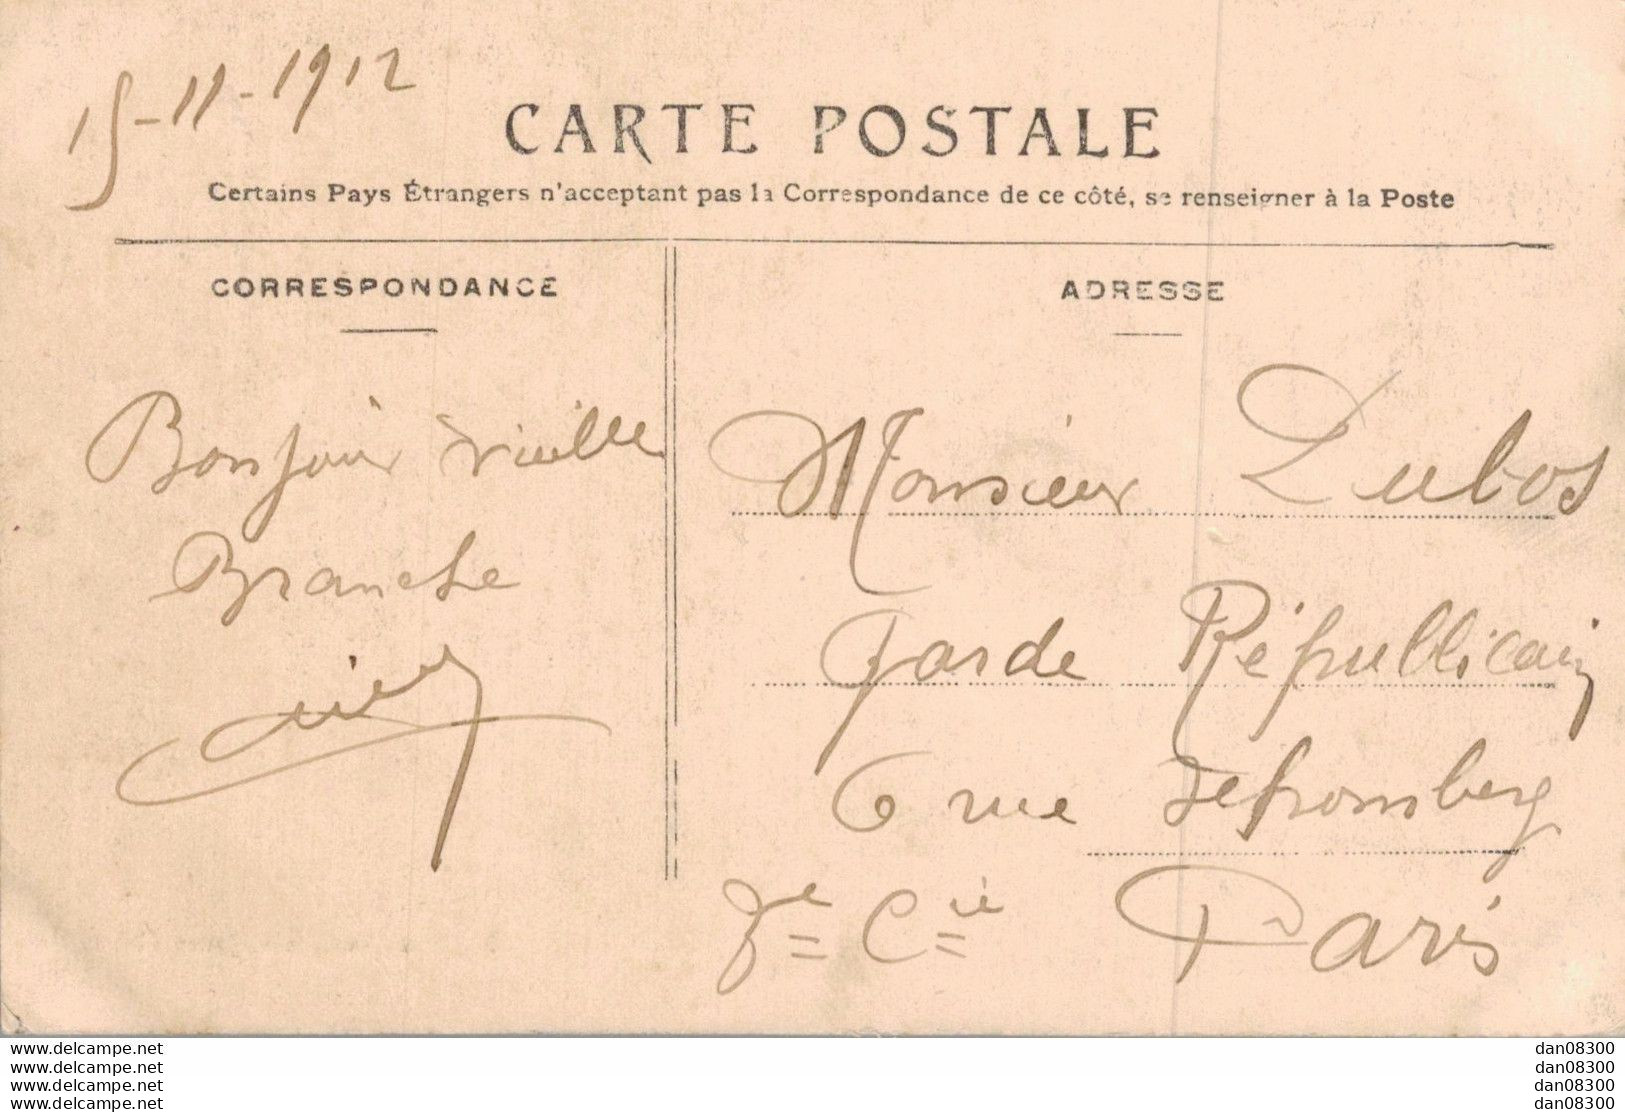 15-11-1912
CARTE POSTALE
Certains Pays Étrangers n'acceptant pas la Correspondance de ce côté, se renseigner à la Poste
CORRESPONDANCE
ADRESSE
Bonjour vieille
Branche
Monsieur Dubos
Garde Républicain
6 rue
Paris
Cie
www.delcampe.net
www.delcampe.net
www.delcampe.net
www.delcampe.net
dan08300
dan08300
dan08300
dan08300